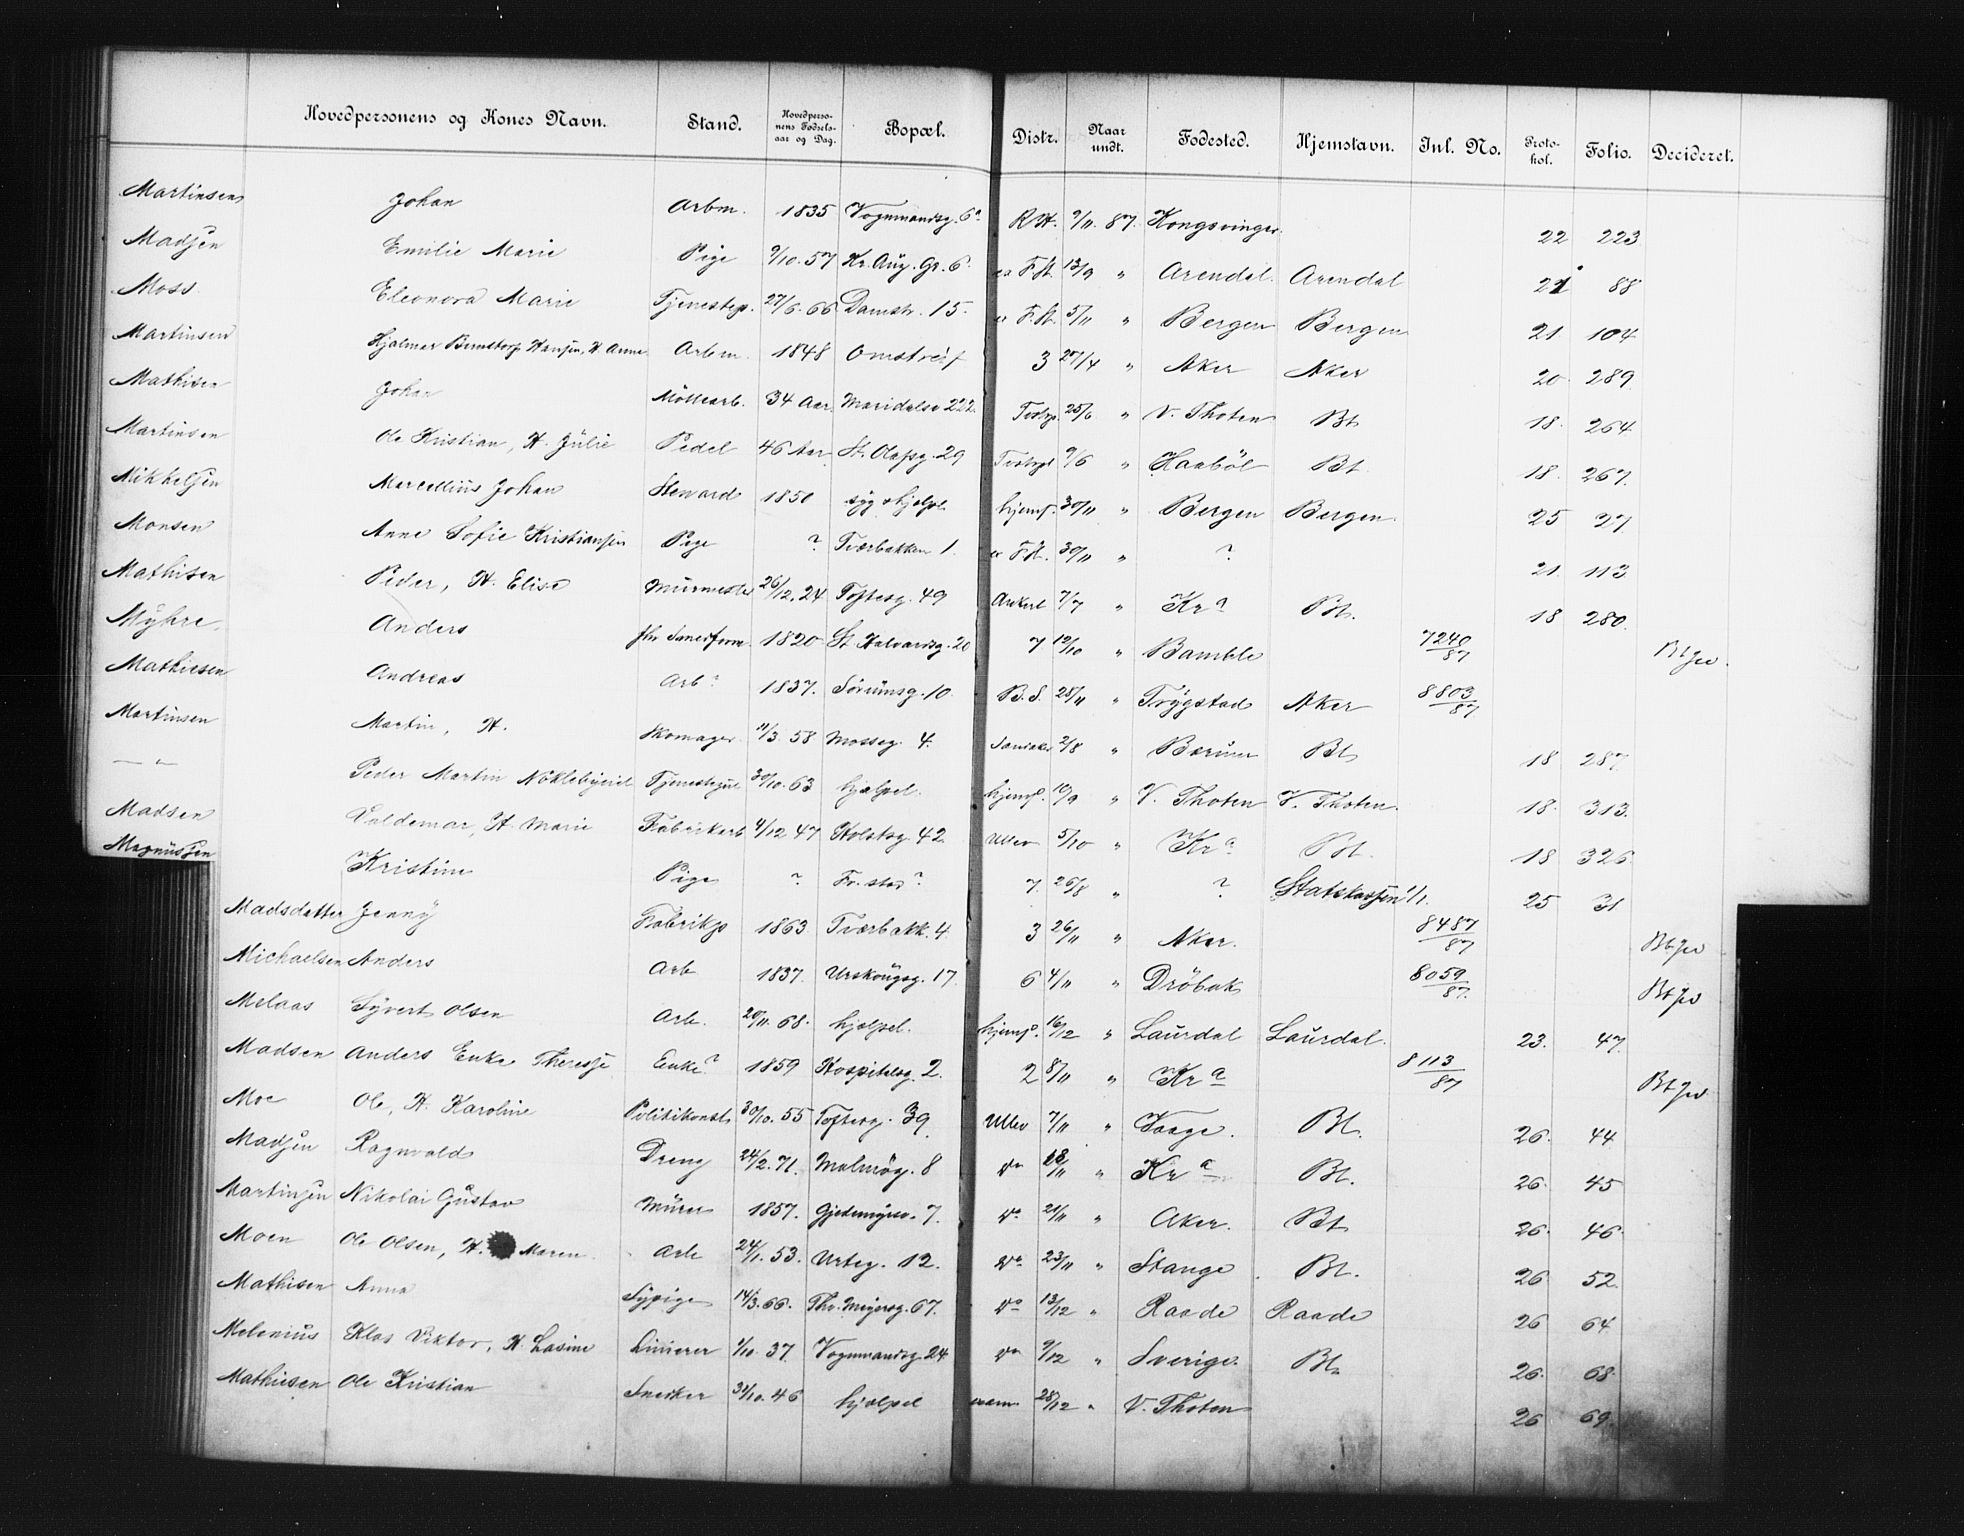 Hovedpersonens og Kones Navn. Stand. Hovedpersonens Fødselsaar og Dag. Bopæl. Distr. Naar undt. Fødested. Hjemstavn. Inl. No. Protokol. Folio. Decideret.
Martinsen Johan Arbm. 1835 Vognmandsg. 6a R.H. 9/11 87. Kongsvinger 22 223
Madsen Emilie Marie Pige 9/10. 57 Kr. Aug. Gr. 6. F.St. 13/9 " Arendal Arendal 21 88
Moss Eleonora Marie Tjenestep. 27/6. 66 Damstr. 15. F.St. 5/11 " Bergen Bergen 21 104
Martinsen Hjalmar Hansen, H. Anne Arbm. 1848 Omstreif 3 27/4 " Aker Aker 20 289
Mathisen Johan Møllearb. 34 Aar Maridalsv 222 25/6 " V. Thoten Bt 18. 264
Martinsen Ole Kristian, H. Julie Pedel 46 Aar St. Olafsg. 29 9/6 " Haabøl Bt 18. 267.
Mikkelsen Marcellius Johan Steward 1850 syg hjælpl. hjemf. 30/11 " Bergen Bergen 25 27
Monsen Anne Sofie Kristiansen Pige ? Tværbakken 1. F.St. 30/11 " ? 21. 113
Mathisen Peder, H. Elise Murmester 26/12. 24 Toftesg. 49 Ankerl 7/7 " Kra Bt. 18 280
Myhre. Anders 1820 St. Halvardsg. 20 7 12/10 " Bamble 7240/87
Mathiesen Andreas Arb? 1837. Sørumsg. 10. B.S. 28/11 " Trygstad Aker 8803/87
Martinsen Martin, H. Skomager 11/3. 58 Mosseg. 4. 2/8 " Bærum Bt 18 287
— " — Peder Martin Nøklebyeie 30/10. 63 hjælpsl. hjemf. 10/9 " V. Thoten V. Thoten 18. 313.
Madsen Valdemar, H. Marie Fabrikarb 4/12 47 Holstsg 42 Ullev 5/10 " Kra Bt. 18 326
Magnussen Kristine Pige ? Fr.stad? 7. 26/8 " ? Statskassen 1/1. 25 31
Madsdatter Jenny Fabrikp 1863 Tværbakk. 4 3 26/11 " Aker. 8487/87
Michaelsen Anders Arb 1837. Urskougsg. 17 6 4/11 " Drøbak 8059/87.
Melaas Syvert Olsen Arb. 20/11. 68. hjælpsl. hjemf. 16/12 " Laurdal Laurdal. 23. 47.
Madsen Anders Enke Theresje Enke? 1859 Hospitalsg. 2. 2 8/11 " Kra 8113/87
Moe Ole, H. Karoline Politikonst. 30/10. 55 Toftesg. 39 Ullev 7/11 " Vaage. Bt. 26. 44
Madsen Ragnvald Dreng 24/2. 71. Malmøg. 8 do 18/11 " Kra Bt. 26. 45
Martinsen Nikolai Gustav Murer 1857. Gjetemyrsv. 7. do 21/11 " Aker. Bt 26. 46
Moen Ole Olsen, H. Maren Arb 24/1. 53. Urteg. 12. do 23/11 " Stange Bt. 26 52
Mathisen Anna Sypige 14/3. 66. Thv. Meyersg. 67. do 13/12 " Raade Raade 26 64
Melenius Klas Viktor, H. Lasine Linierer 1/10. 37. Vognmandsg. 24 do 9/12 " Sverige Bt. 26. 68
Mathiesen Ole Kristian Snedker 31/10. 46 hjælpsl 28/12 " V. Thoten 26 69.